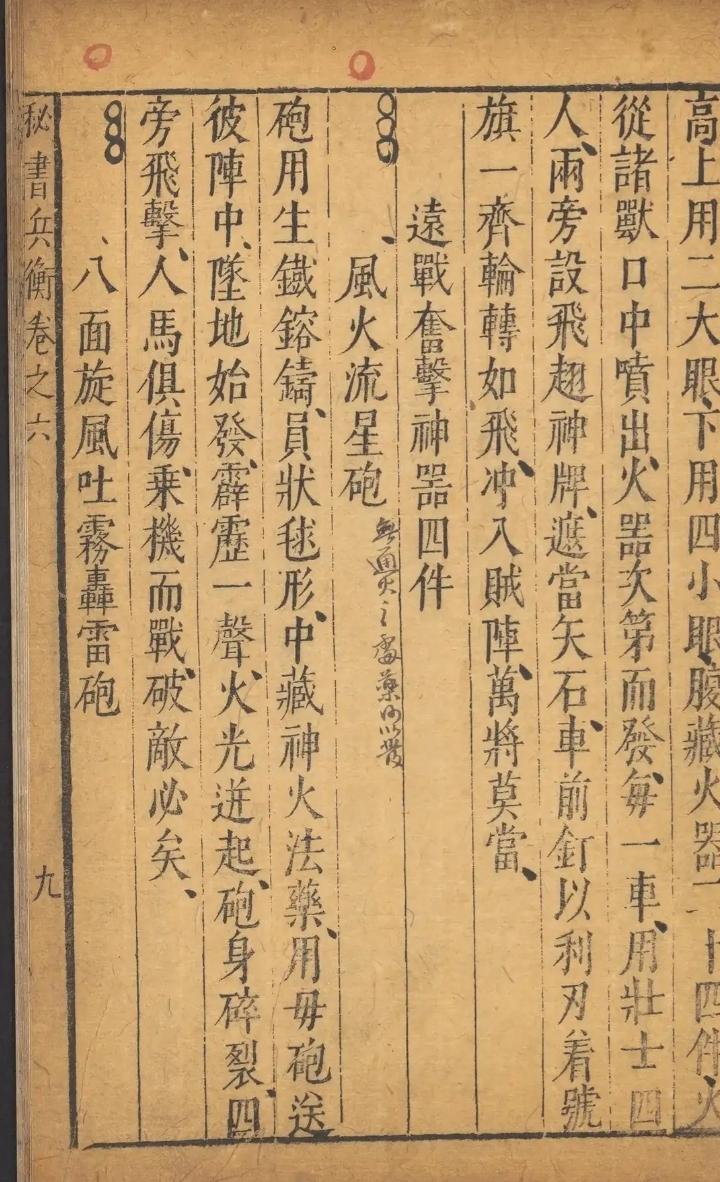 高上用二大眼、下用四小眼、腹藏火器二十四件、火
從諸獸口中噴出、火器次第而發、每一車、用壯士四
人、兩旁設飛翅神牌、遮當矢石、車前釘以利刃着號
旗一齊輪轉如飛、冲入賊陣、萬將莫當、
遠戰奮擊神器四件
風火流星砲
無通火之處藥何以發
砲用生鐵鎔鑄、員狀毬形、中藏神火法藥、用毋砲送
彼陣中、墜地始發、霹靂一聲、火光迸起、砲身碎裂、四
旁飛擊、人馬俱傷、乗機而戰、破敵必矣、
八面旋風吐霧轟雷砲
秘書兵衡卷之六 九